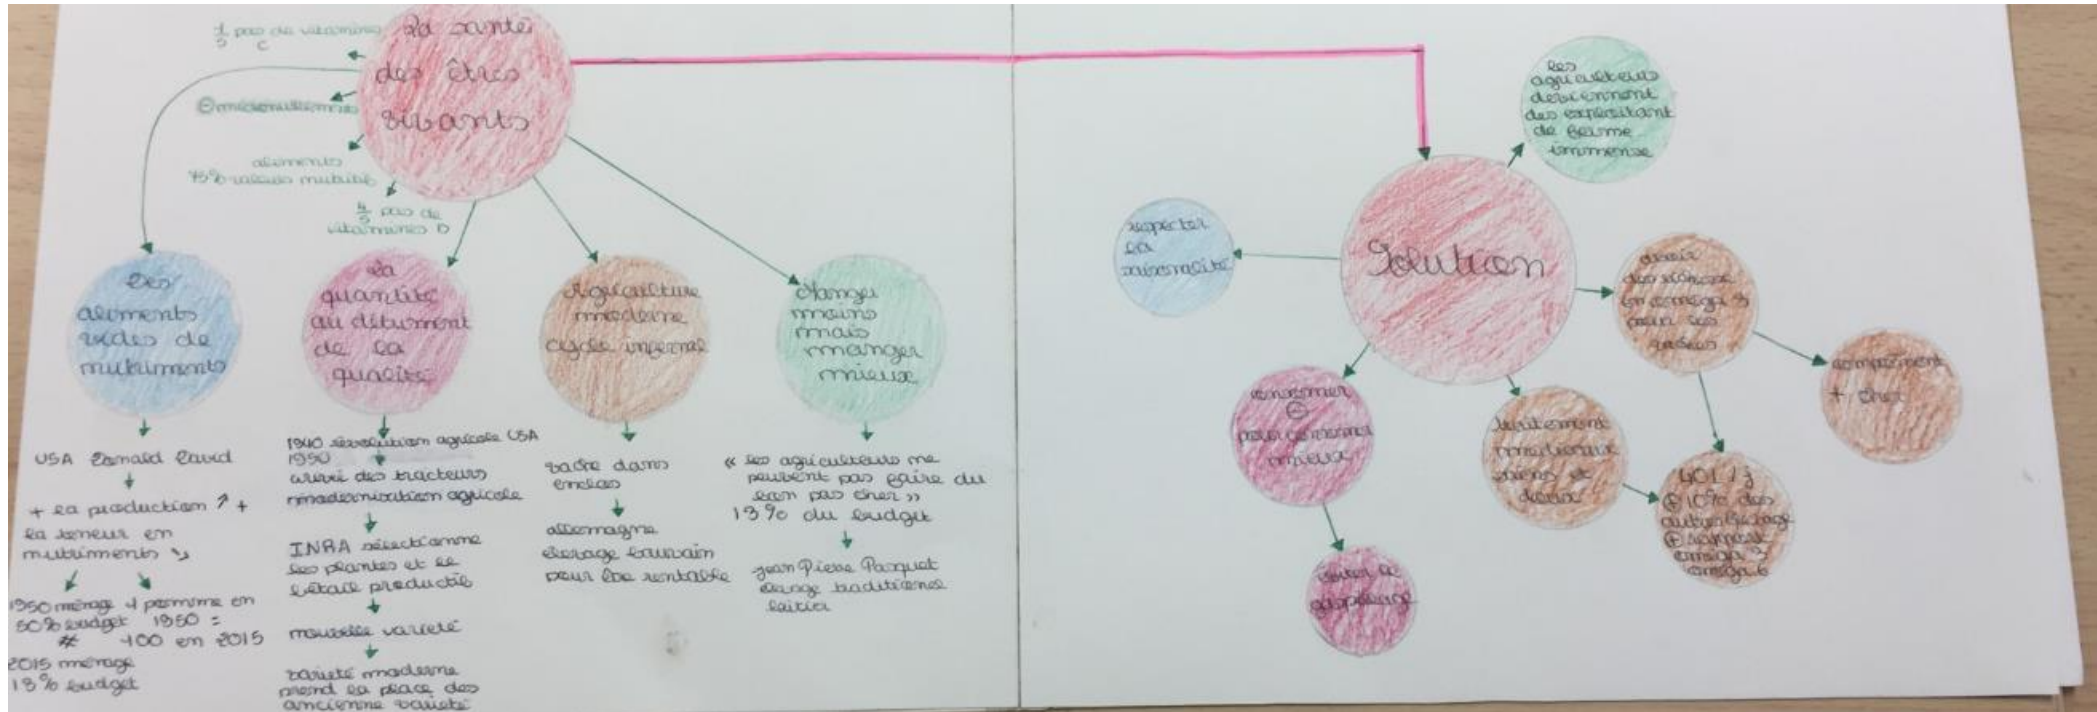 la santé
des êtres
vivants
1/5 pas de vitamines
C
⊖ micronutriments
aliments
75% valeurs nutritif
4/5 pas de
vitamines D
Des
aliments
vides de
nutriments
USA Donald David
+ la production ↗ +
la teneur en
nutriments ↘
1950 ménage
50% budget
≠
2015 ménage
13% budget
1 pomme en
1950 =
100 en 2015
La
quantité
au détriment
de la
qualité
1940 révolution agricole USA
1950
arivé des tracteurs
modernisation agricole
INRA sélectionne
les plantes et le
bétail productif
nouvelle varieté
varieté moderne
prend la place des
ancienne varieté
Agriculture
moderne
cycle infernal
vache dans
enclos
allemagne
élevage
pour être rentable
Manger
moins
mais
manger
mieux
« les agriculteurs ne
peuvent pas faire du
bon pas cher »
13% du budget
Jean Pierre Pasquet
élevage traditionnel
laitier
Solution
les
agriculteurs
deviennent
des exploitant
de ferme
immense
respecter
la
saisonalité
consomer
⊖
pour consomer
mieux
éviter le
gaspillage
traitement
médicaux
moins et
doux
des
en oméga 3
pour les
vaches
complément
+ cher
40 l / j
⊕ 10% des
autre élevage
⊕ rapport
oméga 3
oméga 6